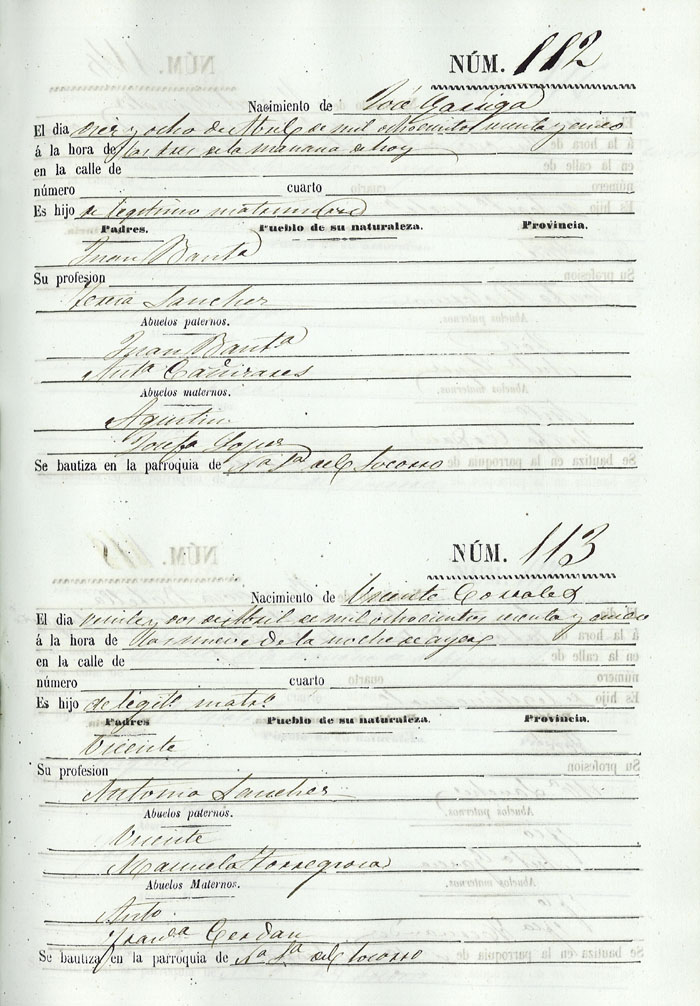 NÚM. 112
Nacimiento de José Garriga
El dia diez y ocho de Abril de mil ochocientos y cinco
á la hora de las tres de la mañana de hoy
en la calle de
número cuarto
Es hijo de legitimo matrimonio
Padres. Pueblo de su naturaleza. Provincia.
Juan Bauta
Su profesion
Teresa Sanchez
Abuelos paternos.
Juan Bauta
Anta Cañizares
Abuelos maternos.
Agustin
Josefa Lopez
Se bautiza en la parroquia de Na Sa del Socorro
NÚM. 113
Nacimiento de Vicente Gonzalez
El dia veinte y dos de Abril de mil ochocientos y cinco
á la hora de las nueve de la noche de ayer
en la calle de
número cuarto
Es hijo de legito matro
Padres Pueblo de su naturaleza. Provincia.
Vicente
Su profesion
Antonia Sanchez
Abuelos paternos.
Vicente
Manuela Torregrosa
Abuelos Maternos.
Anto
Franca Cerdan
Se bautiza en la parroquia de Na Sa del Socorro